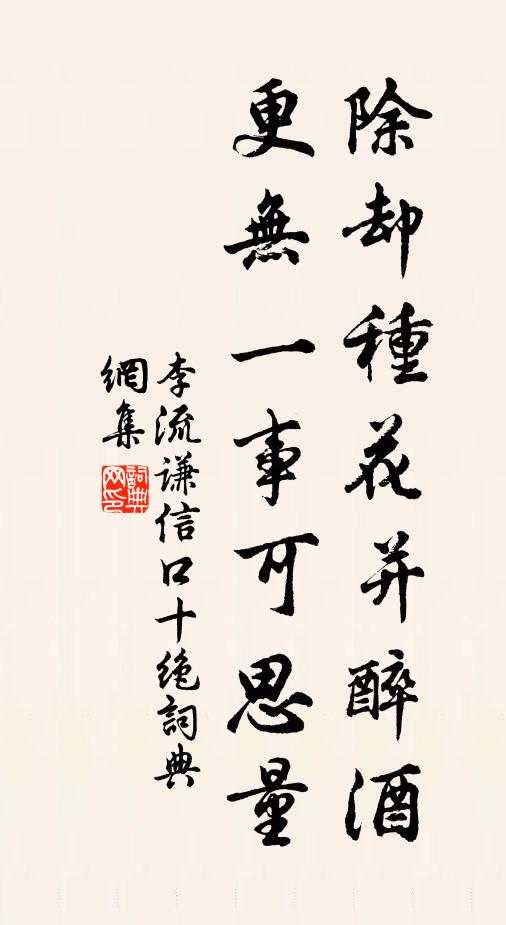 除却種花并醉酒
更無一事可思量
李流謙信口十绝詞典
網集
詞典
网印